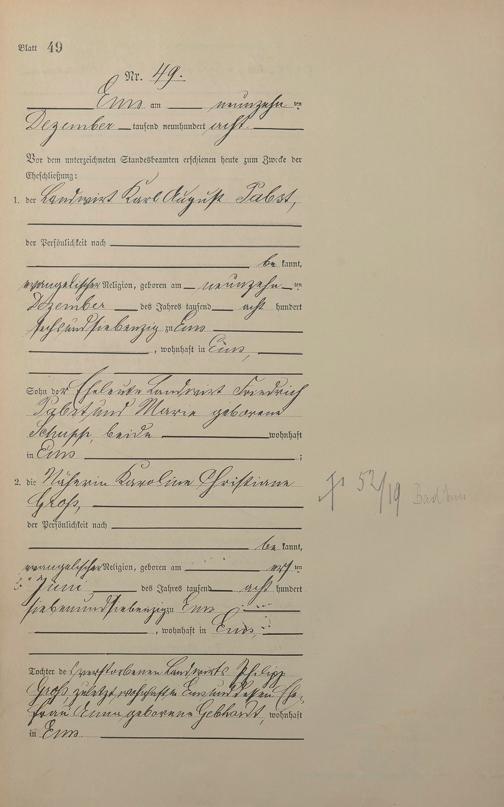 Blatt 49
Nr. 49.
Ems am neunzehnten
Dezember tausend neunhundert acht
Vor dem unterzeichneten Standesbeamten erschienen heute zum Zwecke der
Eheschließung:
1. der Landwirt Karl August Pabst,
der Persönlichkeit nach
bekannt,
evangelischer Religion, geboren am neunzehnten
Dezember des Jahres tausend acht hundert
sechsundsiebenzig zu Ems
, wohnhaft in Ems,
Sohn der Eheleute Landwirt Friedrich
Pabst und Marie geborene
Schupp, beide wohnhaft
in Ems ;
2. die Näherin Karoline Christiane
Groß,
der Persönlichkeit nach
bekannt,
evangelischer Religion, geboren am ersten
Juni des Jahres tausend acht hundert
siebenundsiebenzig zu Ems
, wohnhaft in Ems,
Tochter des verstorbenen Landwirts Philipp
Groß zuletzt wohnhaft in Ems und dessen Ehe-
frau Anna geborene Gebhardt, wohnhaft
in Ems
52/19 Bad Ems